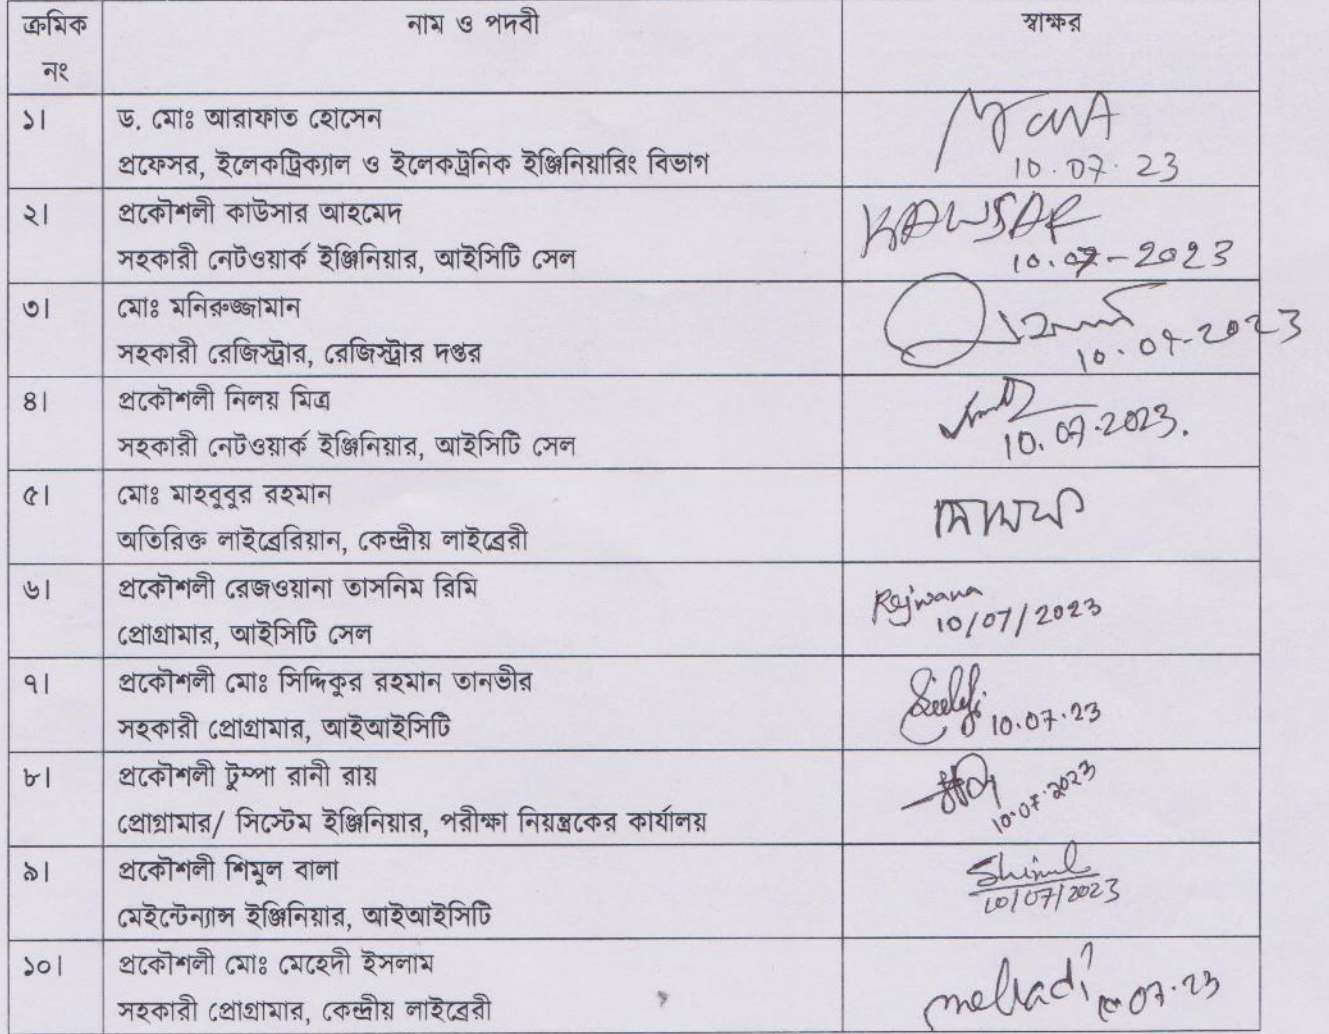 ক্রমিক নং নাম ও পদবী স্বাক্ষর
১। ড. মোঃ আরাফাত হোসেন
প্রফেসর, ইলেকট্রিক্যাল ও ইলেকট্রনিক ইঞ্জিনিয়ারিং বিভাগ
10.07.23
২। প্রকৌশলী কাউসার আহমেদ
সহকারী নেটওয়ার্ক ইঞ্জিনিয়ার, আইসিটি সেল
KAWSAR
10.07-2023
৩। মোঃ মনিরুজ্জামান
সহকারী রেজিস্ট্রার, রেজিস্ট্রার দপ্তর
10.07-2023
৪। প্রকৌশলী নিলয় মিত্র
সহকারী নেটওয়ার্ক ইঞ্জিনিয়ার, আইসিটি সেল
10.07.2023.
৫। মোঃ মাহবুবুর রহমান
অতিরিক্ত লাইব্রেরিয়ান, কেন্দ্রীয় লাইব্রেরী
৬। প্রকৌশলী রেজওয়ানা তাসনিম রিমি
প্রোগ্রামার, আইসিটি সেল
Rejwana
10/07/2023
৭। প্রকৌশলী মোঃ সিদ্দিকুর রহমান তানভীর
সহকারী প্রোগ্রামার, আইআইসিটি
10.07.23
৮। প্রকৌশলী টুম্পা রানী রায়
প্রোগ্রামার/ সিস্টেম ইঞ্জিনিয়ার, পরীক্ষা নিয়ন্ত্রকের কার্যালয়
10.07.2023
৯। প্রকৌশলী শিমুল বালা
মেইন্টেন্যান্স ইঞ্জিনিয়ার, আইআইসিটি
Shimul
10/07/2023
১০। প্রকৌশলী মোঃ মেহেদী ইসলাম
সহকারী প্রোগ্রামার, কেন্দ্রীয় লাইব্রেরী
mehadi
10.07.23